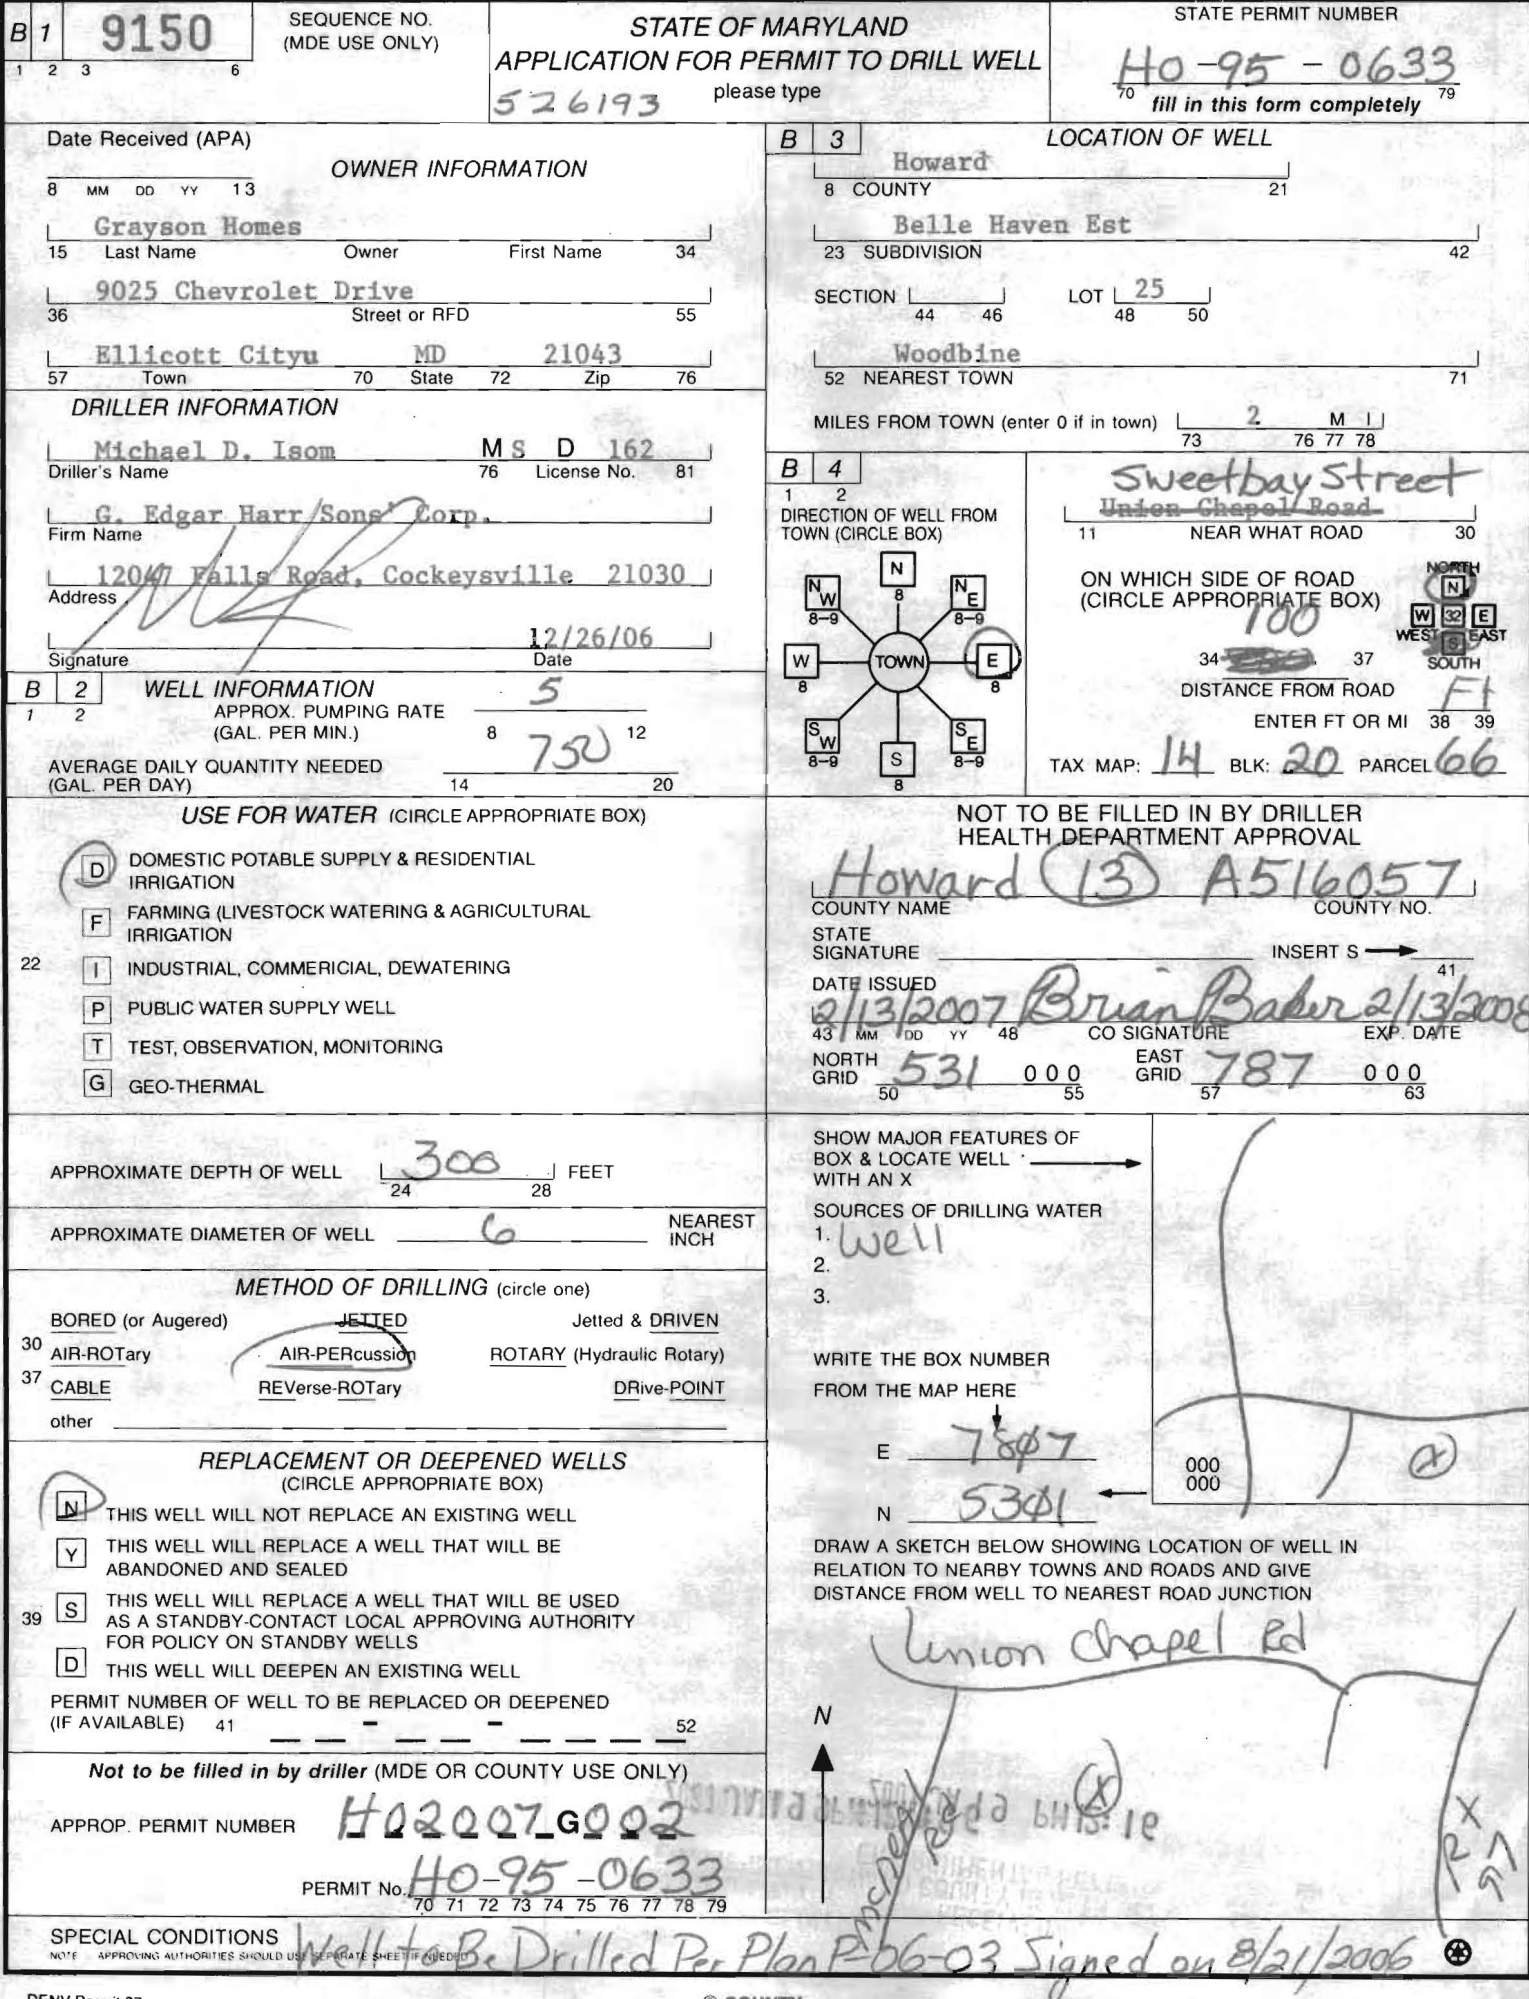 B 1 9150 SEQUENCE NO. (MDE USE ONLY)
1 2 3 6
STATE OF MARYLAND
APPLICATION FOR PERMIT TO DRILL WELL
please type
526193
STATE PERMIT NUMBER
HO-95-0633
70 79
fill in this form completely
Date Received (APA)
8 MM DD YY 13
OWNER INFORMATION
Grayson Homes
15 Last Name Owner First Name 34
9025 Chevrolet Drive
36 Street or RFD 55
Ellicott Cityu MD 21043
57 Town 70 State 72 Zip 76
DRILLER INFORMATION
Michael D. Isom M S D 162
Driller's Name 76 License No. 81
G. Edgar Harr Sons' Corp.
Firm Name
12047 Falls Road, Cockeysville 21030
Address
12/26/06
Signature Date
B 2 WELL INFORMATION
1 2
APPROX. PUMPING RATE 5
(GAL. PER MIN.) 8 12
AVERAGE DAILY QUANTITY NEEDED 750
(GAL. PER DAY) 14 20
USE FOR WATER (CIRCLE APPROPRIATE BOX)
D DOMESTIC POTABLE SUPPLY & RESIDENTIAL
IRRIGATION
F FARMING (LIVESTOCK WATERING & AGRICULTURAL
IRRIGATION
22 I INDUSTRIAL, COMMERICIAL, DEWATERING
P PUBLIC WATER SUPPLY WELL
T TEST, OBSERVATION, MONITORING
G GEO-THERMAL
APPROXIMATE DEPTH OF WELL 300 FEET
24 28
APPROXIMATE DIAMETER OF WELL 6 NEAREST INCH
METHOD OF DRILLING (circle one)
BORED (or Augered) JETTED Jetted & DRIVEN
30 AIR-ROTary AIR-PERcussion ROTARY (Hydraulic Rotary)
37 CABLE REVerse-ROTary DRive-POINT
other
REPLACEMENT OR DEEPENED WELLS
(CIRCLE APPROPRIATE BOX)
N THIS WELL WILL NOT REPLACE AN EXISTING WELL
Y THIS WELL WILL REPLACE A WELL THAT WILL BE
ABANDONED AND SEALED
39 S THIS WELL WILL REPLACE A WELL THAT WILL BE USED
AS A STANDBY-CONTACT LOCAL APPROVING AUTHORITY
FOR POLICY ON STANDBY WELLS
D THIS WELL WILL DEEPEN AN EXISTING WELL
PERMIT NUMBER OF WELL TO BE REPLACED OR DEEPENED
(IF AVAILABLE) 41 - - 52
Not to be filled in by driller (MDE OR COUNTY USE ONLY)
APPROP. PERMIT NUMBER HO2007G002
PERMIT No. HO-95-0633
70 71 72 73 74 75 76 77 78 79
B 3 LOCATION OF WELL
Howard
8 COUNTY 21
Belle Haven Est
23 SUBDIVISION 42
SECTION LOT 25
44 46 48 50
Woodbine
52 NEAREST TOWN 71
MILES FROM TOWN (enter 0 if in town) 2 M I
73 76 77 78
B 4
1 2
DIRECTION OF WELL FROM
TOWN (CIRCLE BOX)
N 8
NW 8-9 NE 8-9
W 8 TOWN E 8
SW 8-9 SE 8-9
S 8
Sweetbay Street
Union Chapel Road
11 NEAR WHAT ROAD 30
ON WHICH SIDE OF ROAD
(CIRCLE APPROPRIATE BOX)
NORTH N
W 32 E
WEST S EAST
SOUTH
100
34 37
DISTANCE FROM ROAD
ENTER FT OR MI Ft
38 39
TAX MAP: 14 BLK: 20 PARCEL 66
NOT TO BE FILLED IN BY DRILLER
HEALTH DEPARTMENT APPROVAL
Howard (13) A516057
COUNTY NAME COUNTY NO.
STATE
SIGNATURE INSERT S
41
DATE ISSUED
2/13/2007 Brian Baker 2/13/2008
43 MM DD YY 48 CO SIGNATURE EXP. DATE
NORTH GRID 531 000 EAST GRID 787 000
50 55 57 63
SHOW MAJOR FEATURES OF
BOX & LOCATE WELL
WITH AN X
SOURCES OF DRILLING WATER
1. Well
2.
3.
WRITE THE BOX NUMBER
FROM THE MAP HERE
E 7807
N 5301
000
000
X
DRAW A SKETCH BELOW SHOWING LOCATION OF WELL IN
RELATION TO NEARBY TOWNS AND ROADS AND GIVE
DISTANCE FROM WELL TO NEAREST ROAD JUNCTION
Union Chapel Rd
N
X
Rd
RX 97
SPECIAL CONDITIONS
NOTE APPROVING AUTHORITIES SHOULD USE SEPARATE SHEET IF NEEDED
Well to Be Drilled Per Plan F-06-03 Signed on 8/21/2006